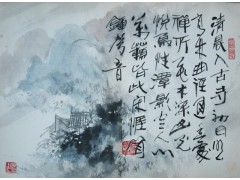 清晨入古寺初日照
高林曲徑通幽處
禪房花木深山光
悅鳥性潭影空人心
萬籟此寂惟聞
鐘磬音